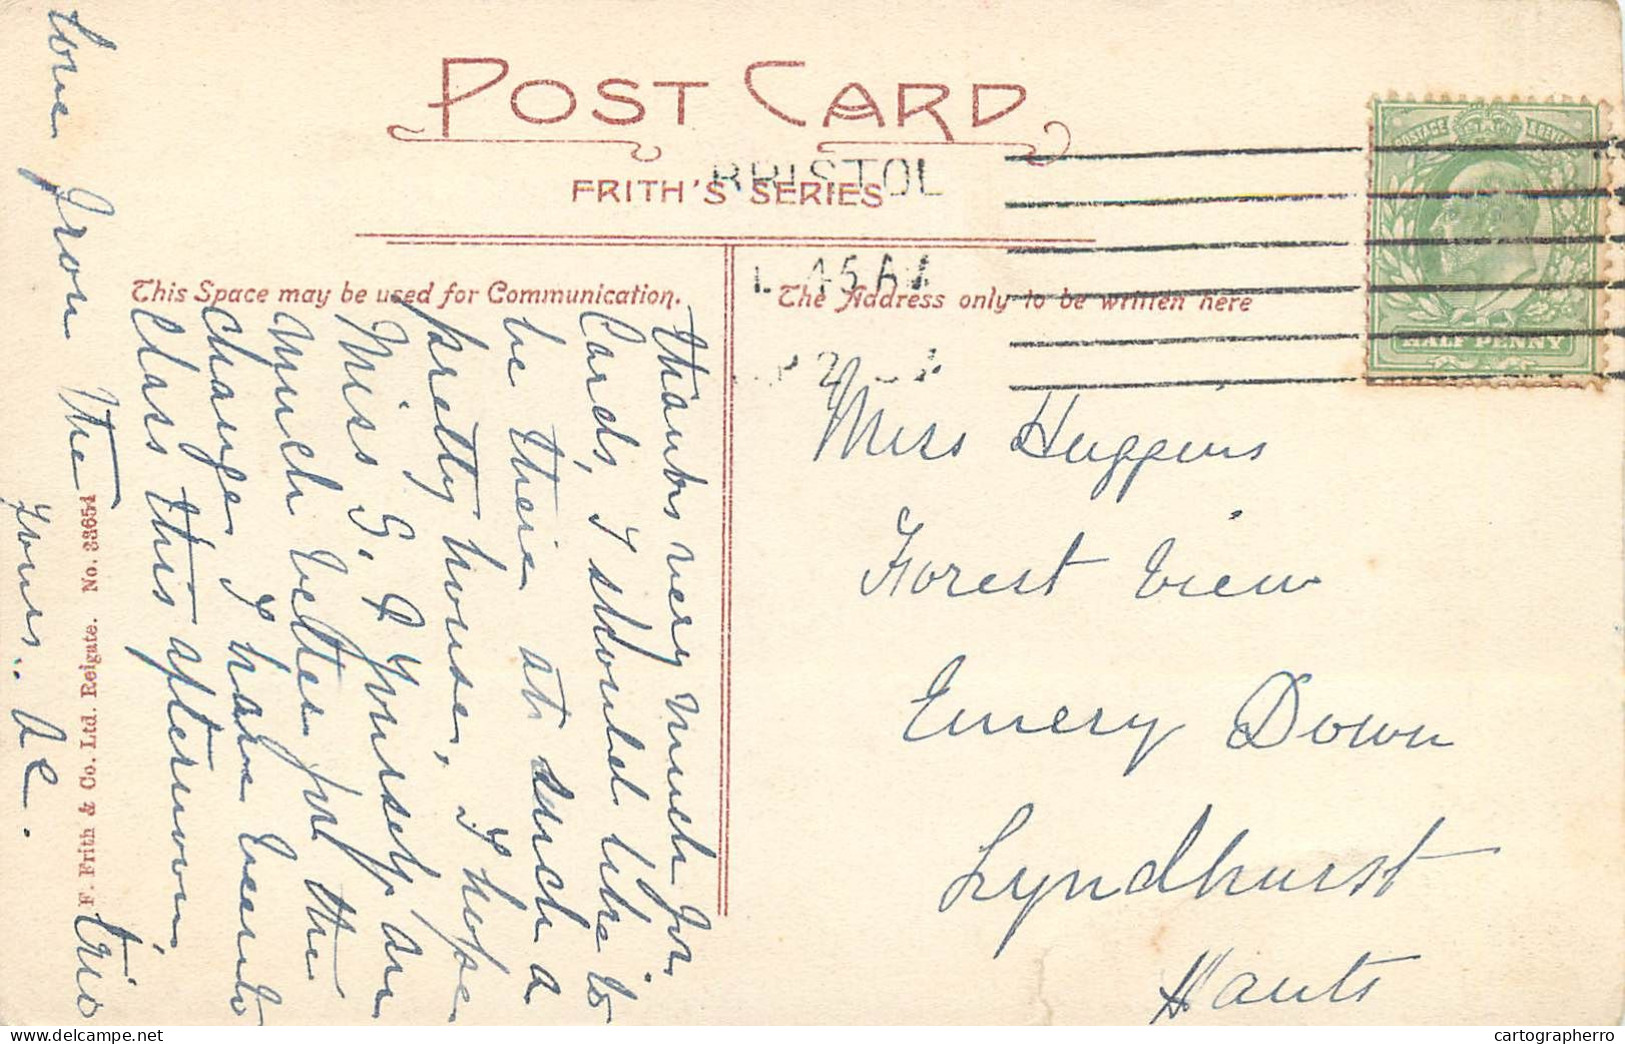 POST CARD
FRITH'S SERIES
BRISTOL
45 AM
This Space may be used for Communication.
The Address only to be written here
POSTAGE & REVENUE
HALF PENNY
Thanks very much for
Cards, I should like to
be there at such a
pretty house, I hope
Miss G, & Yourself are
much better for the
change, I have been to
Class this afternoon,
love from the trio
Yours..
F. Frith & Co. Ltd. Reigate. No. 33654
Miss Huggins
Forest View
Emery Down
Lyndhurst
Hants
cartographerro